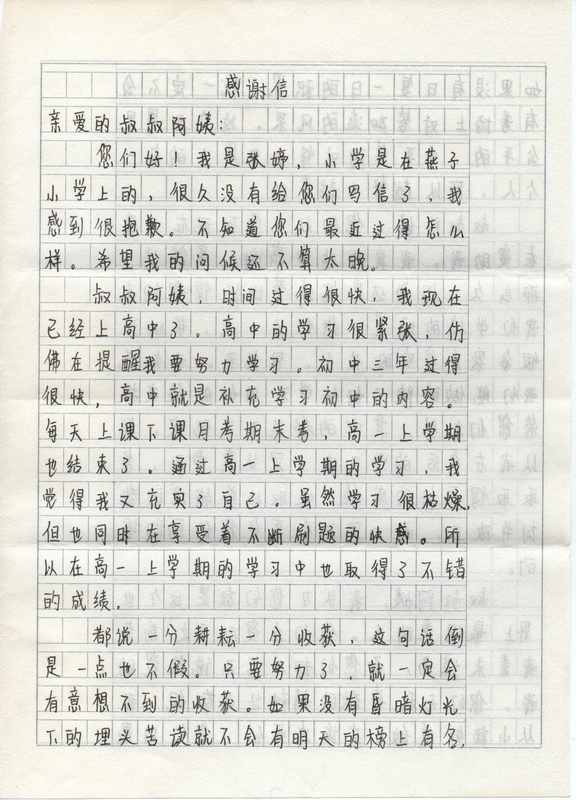 感谢信
亲爱的叔叔阿姨：
您们好！我是张婷，小学是在燕子
小学上的，很久没有给您们写信了，我
感到很抱歉。不知道您们最近过得怎么
样。希望我的问候还不算太晚。
叔叔阿姨，时间过得很快，我现在
已经上高中了。高中的学习很紧张，仿
佛在提醒我要努力学习。初中三年过得
很快，高中就是补充学习初中的内容。
每天上课下课月考期末考，高一上学期
也结束了。通过高一上学期的学习，我
觉得我又充实了自己。虽然学习很枯燥，
但也同时在享受着不断刷题的快感。所
以在高一上学期的学习中也取得了不错
的成绩。
都说一分耕耘一分收获，这句话倒
是一点也不假。只要努力了，就一定会
有意想不到的收获。如果没有昏暗灯光
下的埋头苦读就不会有明天的榜上有名，